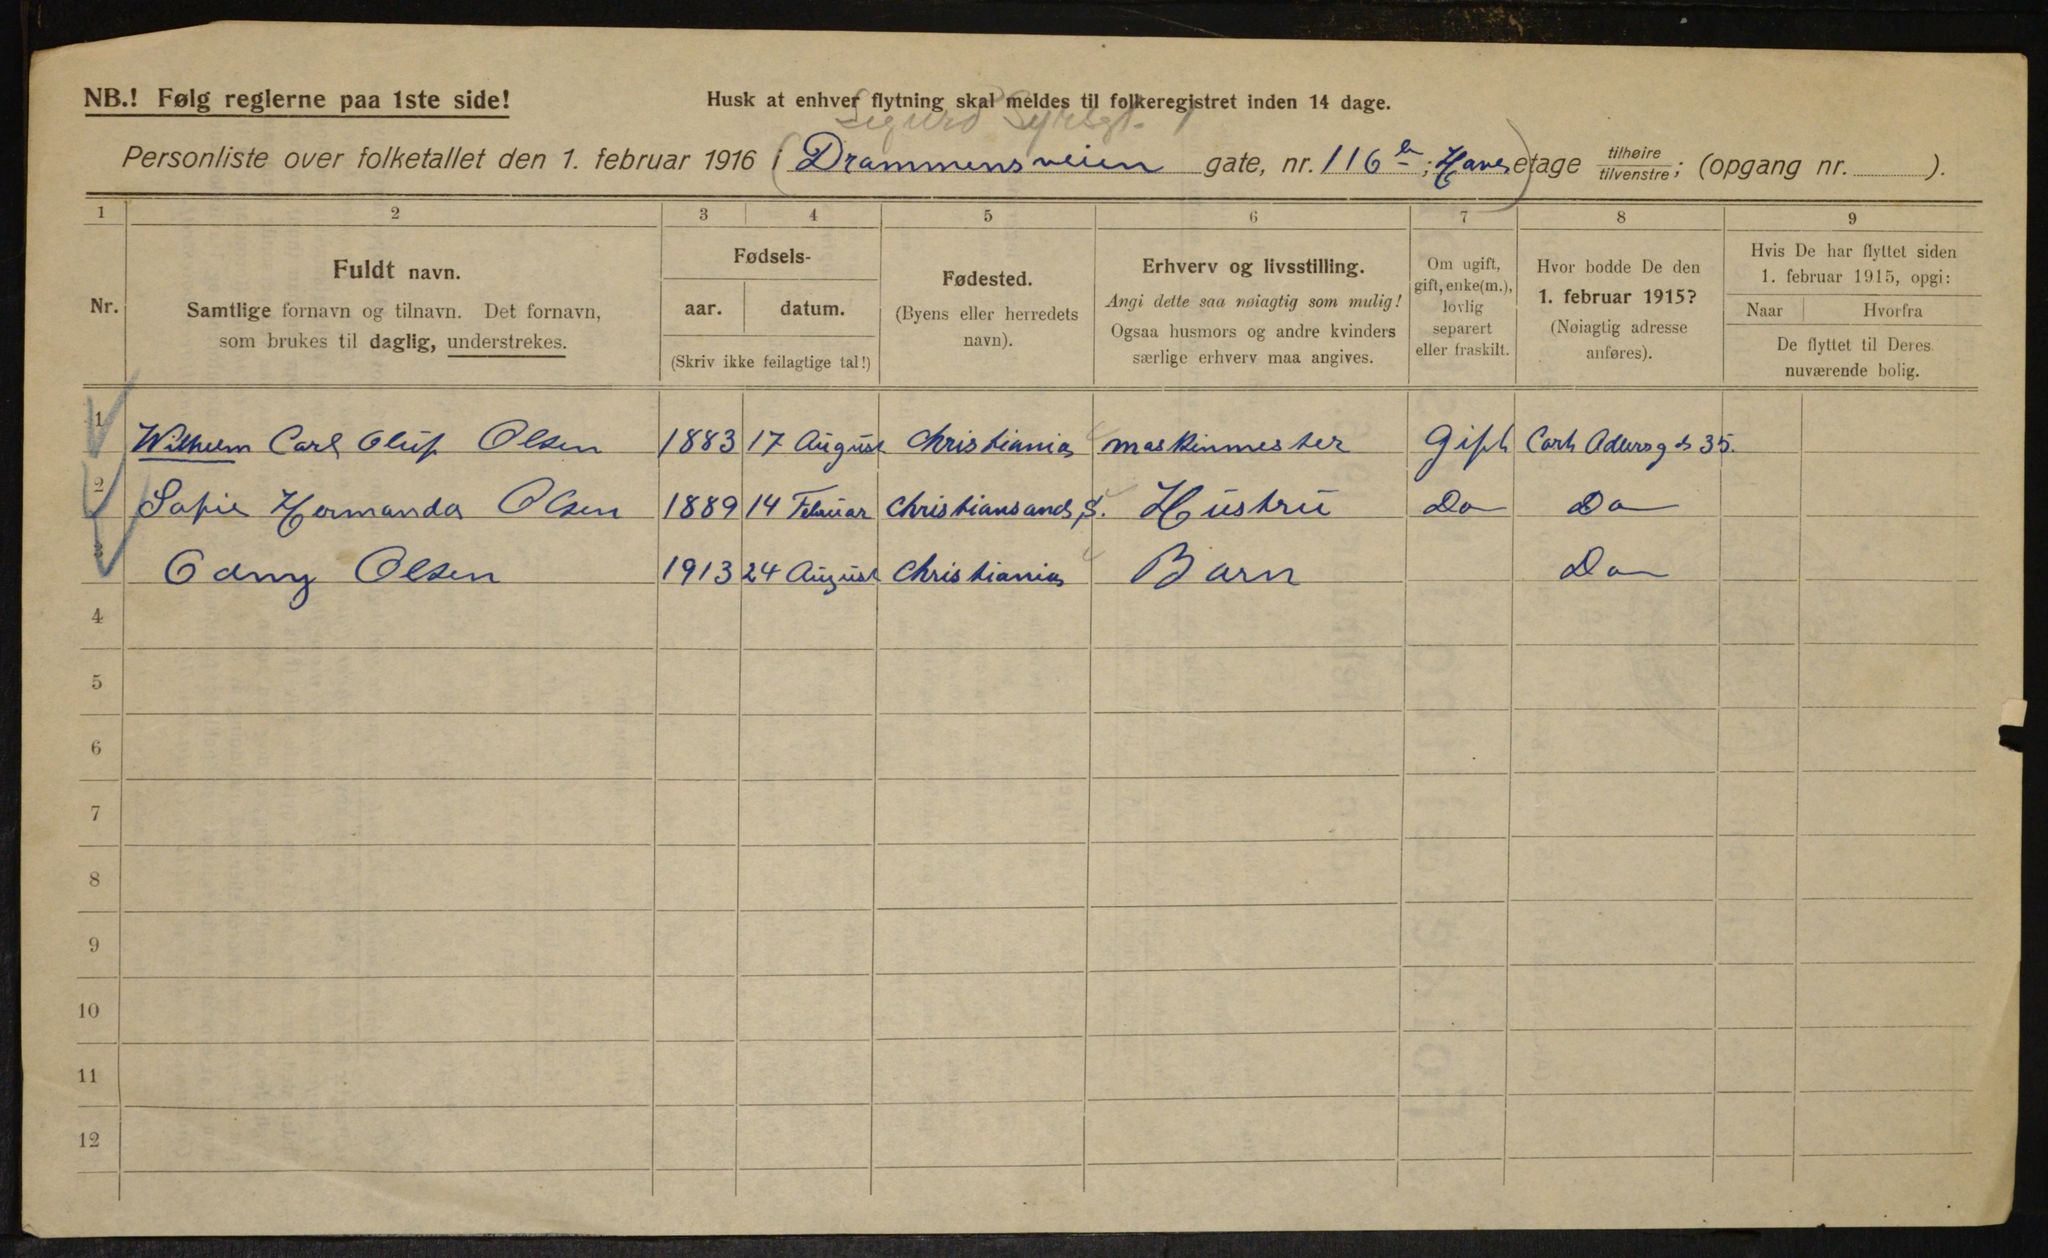 NB.! Følg reglerne paa 1ste side!
Husk at enhver flytning skal meldes til folkeregistret inden 14 dage.
Sigurd Syrsgt. 1
Personliste over folketallet den 1. februar 1916 i (Drammensveien gate, nr. 116 b; Have) etage tilhøire/tilvenstre; (opgang nr. ).
1 2 3 4 5 6 7 8 9
Nr.
Fuldt navn.
Samtlige fornavn og tilnavn. Det fornavn,
som brukes til daglig, understrekes.
Fødsels-
aar. datum.
(Skriv ikke feilagtige tal!)
Fødested.
(Byens eller herredets
navn).
Erhverv og livsstilling.
Angi dette saa nøiagtig som mulig!
Ogsaa husmors og andre kvinders
særlige erhverv maa angives.
Om ugift,
gift, enke(m.),
lovlig
separert
eller fraskilt.
Hvor bodde De den
1. februar 1915?
(Nøiagtig adresse
anføres).
Hvis De har flyttet siden
1. februar 1915, opgi:
Naar Hvorfra
De flyttet til Deres
nuværende bolig.
1 Wilhelm Carl Oluf Olsen 1883 17 August Christiania maskinmester Gift Carl Adersgds 35.
2 Sofie Hermanda Olsen 1889 14 Februar Christiansand S. Hustru Do Do
3 Odny Olsen 1913 24 August Christiania Barn Do
4
5
6
7
8
9
10
11
12